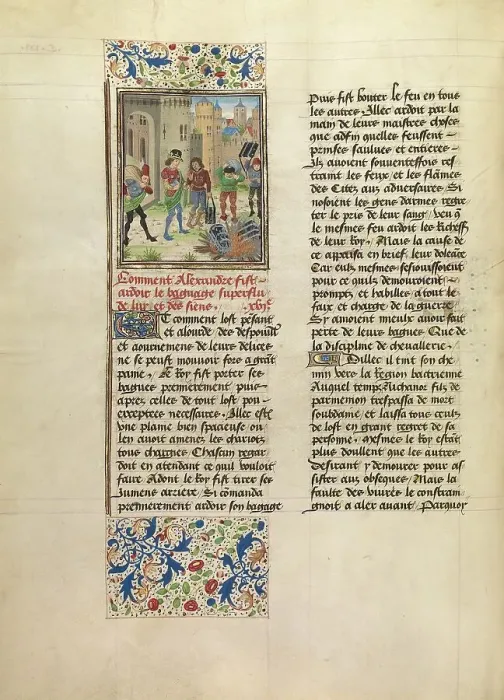 Comment Alexandre fist
ardoir le baguage superflu
de luy et des siens. xvije.
Et comment lost pesant
et aloude, des despouilles
et aournemens de leurs delices
ne se peust mouvoir fors a grant
paine. Le Roy fist porter ses
bagues premierement puis
apres celles de tout lost pou
exceptees necessaires. Illec estoit
vne plaine bien spacieuse ou
len auoit amenez les chariots
tous charges Chascun regar
doit en atendant ce quil vouloit
faire Adont le Roy fist tirer ses
Jumens arriere, Si commanda
premierement ardoir son bagage
Puis fist bouter le feu en tous
les autres. Illec ardoit par la
main de leurs maistres choses
que adfin quelles feussent
prinses saulues et entieres
Ilz auoient souuenteffois res
traint les feux, et les flames
des Citez aux aduersaires. Si
nosoient les gens darmes regre
ter le pris de leur sang, veu que
le mesmes feu ardoit les Richesses
de leur Roy. Mais la cause de
ce apparsa en brief, leur doleance
Car eulx mesmes sesiouissoient
pour ce quilz demouroient
promptz et habilles a tout le
faix et charge de la guerre
Si aymoient mieulx auoir fait
perte de leurs bagues Que de
la discipline de cheuallerie.
Dillec il tint son che
min vers la Region bactrienne
Auquel temps, Nichanor filz de
parmenion trespassa de mort
soubdaine, et laissa tous ceulx
de lost en grant regret de sa
personne. Mesmes le Roy estat
plus doullent que les autres
desirant y demourer pour as
sister aux obseques, Mais la
faulte des viures le constrain
gnoit a aler auant, Parquoy